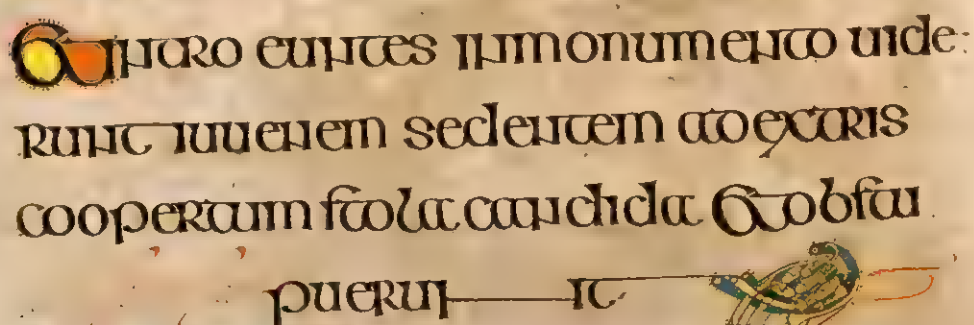 Et intro euntes inmonumento uide:
runt iuuenem sedentem adextris
coopertum stola candida Et obstu
puerunt